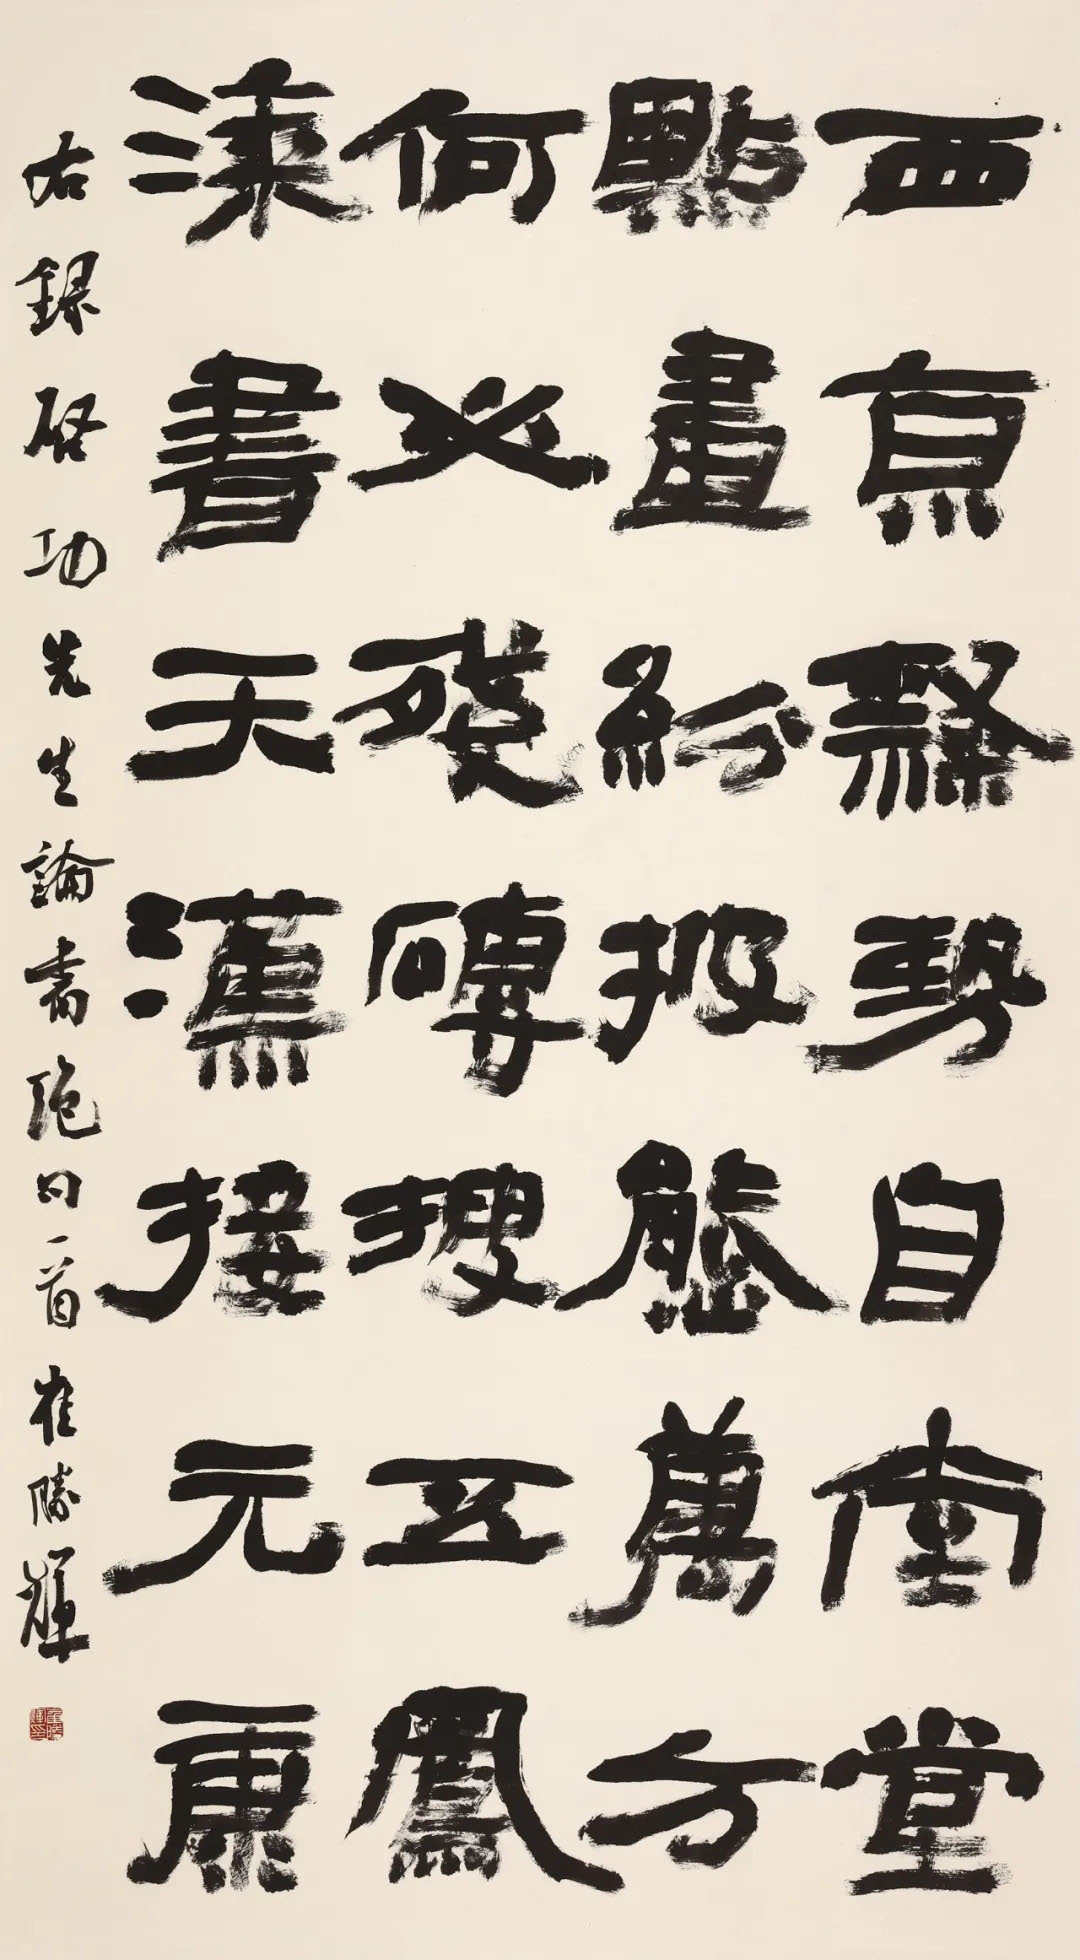 西京隸勢自堂堂
點畫紛披態萬方
何必殘磚搜五鳳
漆書天漢接元康
右錄啓功先生論書絕句一首崔勝輝